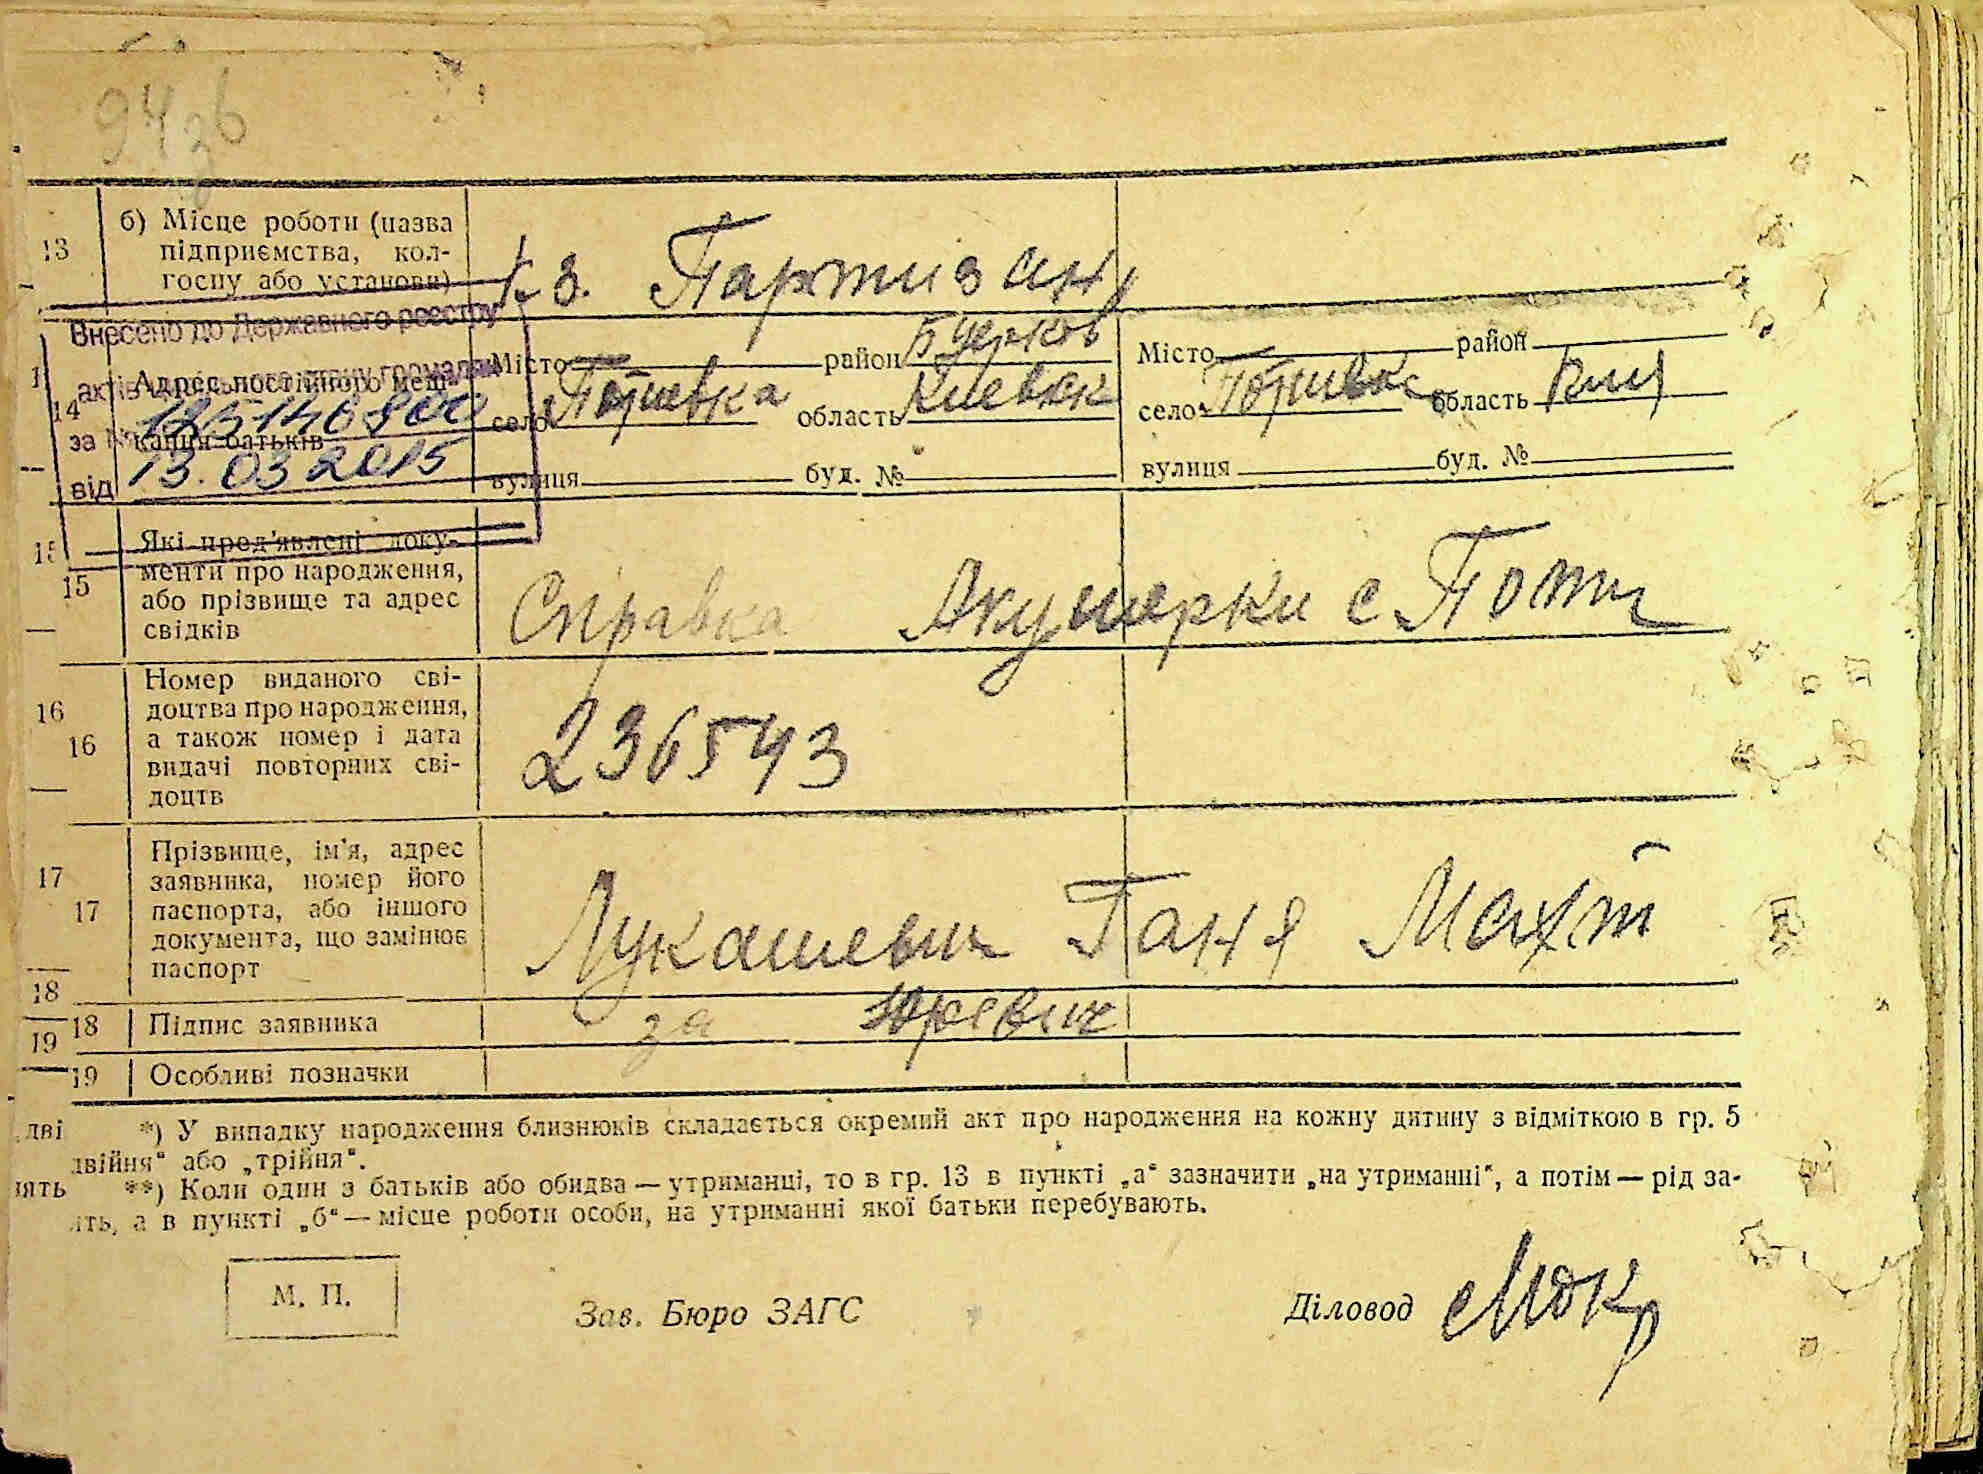 94зв
13
б) Місце роботи (назва
підприємства, кол-
госпу або установи)
к з. Партизан
Внесено до Державного реєстру
14
Адрес постійного меш-
канця батьків
за №
від 13.03 2015
Місто район Б церков
село області Киевск
вулиця буд. №
Місто район
село область
вулиця буд. №
15
15
Які пред'явлені доку-
менти про народження,
або прізвище та адрес
свідків
Справка Акушерки с
16
16
Номер виданого сві-
доцтва про народження,
а також номер і дата
видачі повторних сві-
доцтв
236543
17
17
Прізвище, ім'я, адрес
заявника, номер його
паспорта, або іншого
документа, що замінює
паспорт
Лукашевич Ганя
18
18
Підпис заявника
за Юревич
19
19
Особливі позначки
дві *) У випадку народження близнюків складається окремий акт про народження на кожну дитину з відміткою в гр. 5
двійня" або „трійня".
**) Коли один з батьків або обидва — утриманці, то в гр. 13 в пункті „а" зазначити „на утриманні", а потім — рід за-
а в пункті „б" — місце роботи особи, на утриманні якої батьки перебувають.
М. П.
Зав. Бюро ЗАГС
Діловод